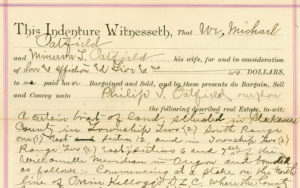 This Indenture Witnesseth, That We, Michael
Oatfield
and Minerva T. Oatfield his wife, for and in consideration
of Love & Affection and DOLLARS,
us paid Bargained and Sold, and by these presents do Bargain, Sell
and Convey unto Philip T. Oatfield our son
the following described real Estate, to-wit:
A certain tract of Land, situated in Clackamas
County in township Two (2) South Range
one (1) East Section 12, and in Township Two (2)
Range Two (2) East Sections 6 and 7 of the
Willamette Meridian in Oregon and bounded
as follows:- Commencing at a stake on the North
line of Orrin Kellogg D.L.C. where the